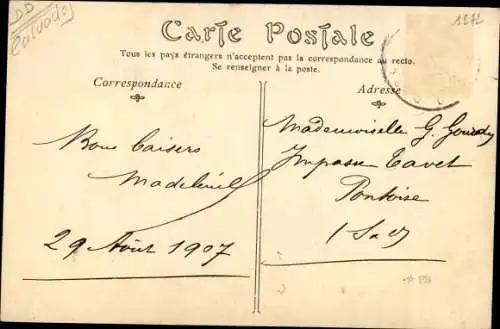 DD
Calvados
1272
Carte Postale
Tous les pays étrangers n'acceptent pas la correspondance au recto.
Se renseigner à la poste.
Correspondance
Adresse
Bons baisers
29 Août 1907
Mademoiselle G.
Impasse Tavet
Pontoise